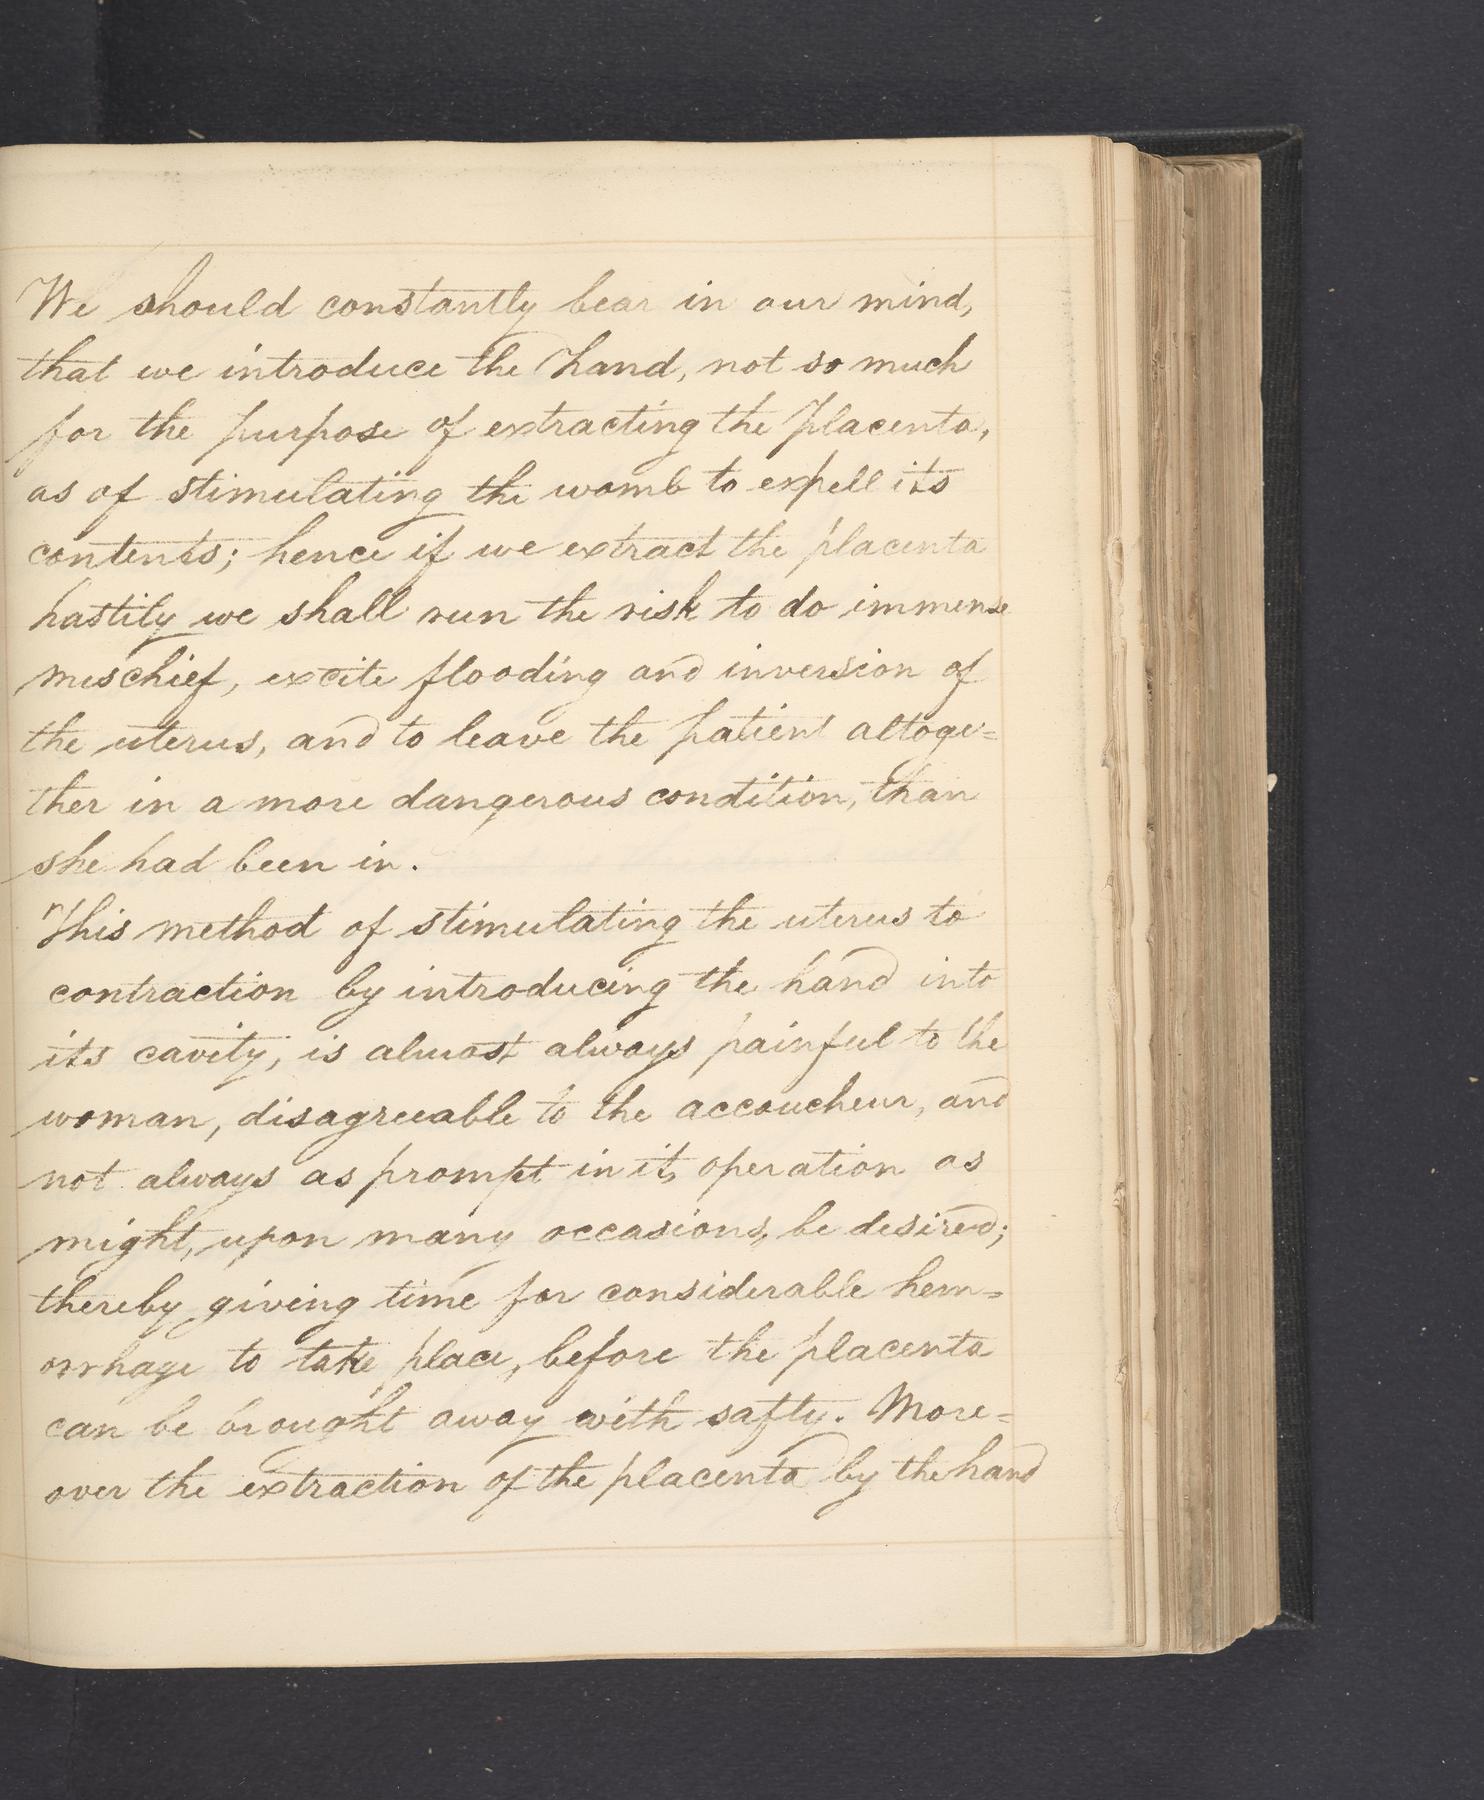 We should constantly bear in our mind,
that we introduce the hand, not so much
for the purpose of extracting the placenta,
as of stimulating the womb to expell its
contents; hence if we extract the placenta
hastily we shall run the risk to do immense
mischief, excite flooding and inversion of
the uterus, and to leave the patient altoge=
ther in a more dangerous condition, than
she had been in.
This method of stimulating the uterus to
contraction by introducing the hand into
its cavity, is almost always painful to the
woman, disagreeable to the accoucheur, and
not always as prompt in its operation as
might, upon many occasions, be desired;
thereby giving time for considerable hem=
orrhage to take place, before the placenta
can be brought away with safty. More=
over the extraction of the placenta by the hand